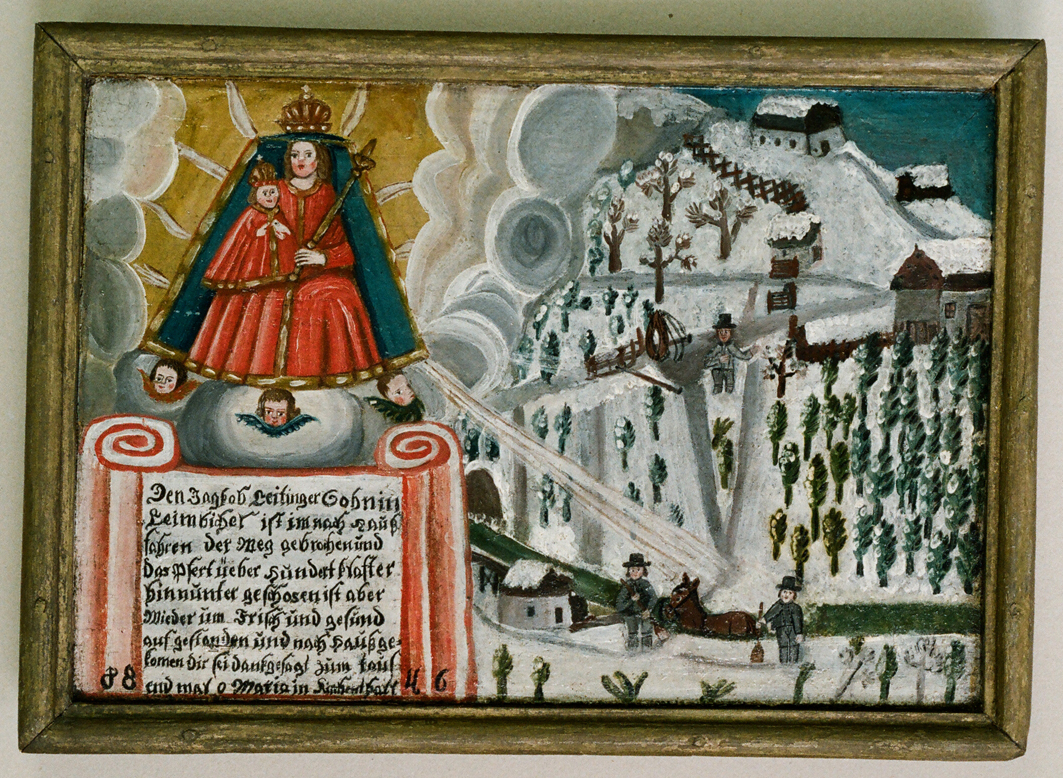 Den Jaghob Leitinger Sohn in
Leimbicher ist im nach Hauß
fahren der Weg gebrochen und
das Pfert ueber Hundert klafter
hinnunter geschosen ist aber
Wieder um frisch und gesund
auf gestanden und nach Hauß ge-
komen dir sei dankgesagt zum taus-
end mal o Maria in
18 46